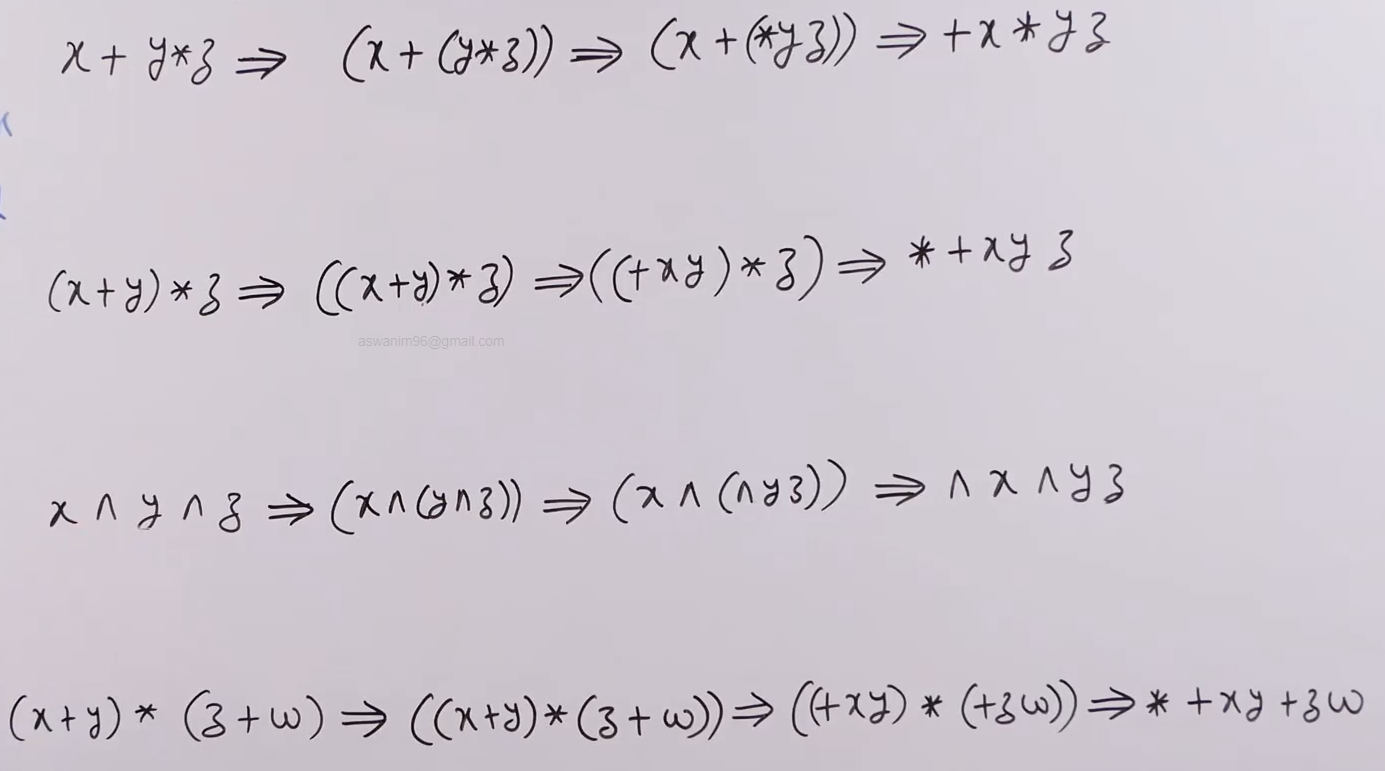 x + y * z ⇒ (x + (y*z)) ⇒ (x + (*yz)) ⇒ +x * y z
(x+y) * z ⇒ ((x+y) * z) ⇒ ((+xy) * z) ⇒ * + xy z
aswanim96@gmail.com
x ∧ y ∧ z ⇒ (x∧(y∧z)) ⇒ (x ∧ (∧yz)) ⇒ ∧ x ∧ y z
(x+y) * (z + w) ⇒ ((x+y) * (z + w)) ⇒ ((+xy) * (+zw)) ⇒ * +xy +zw